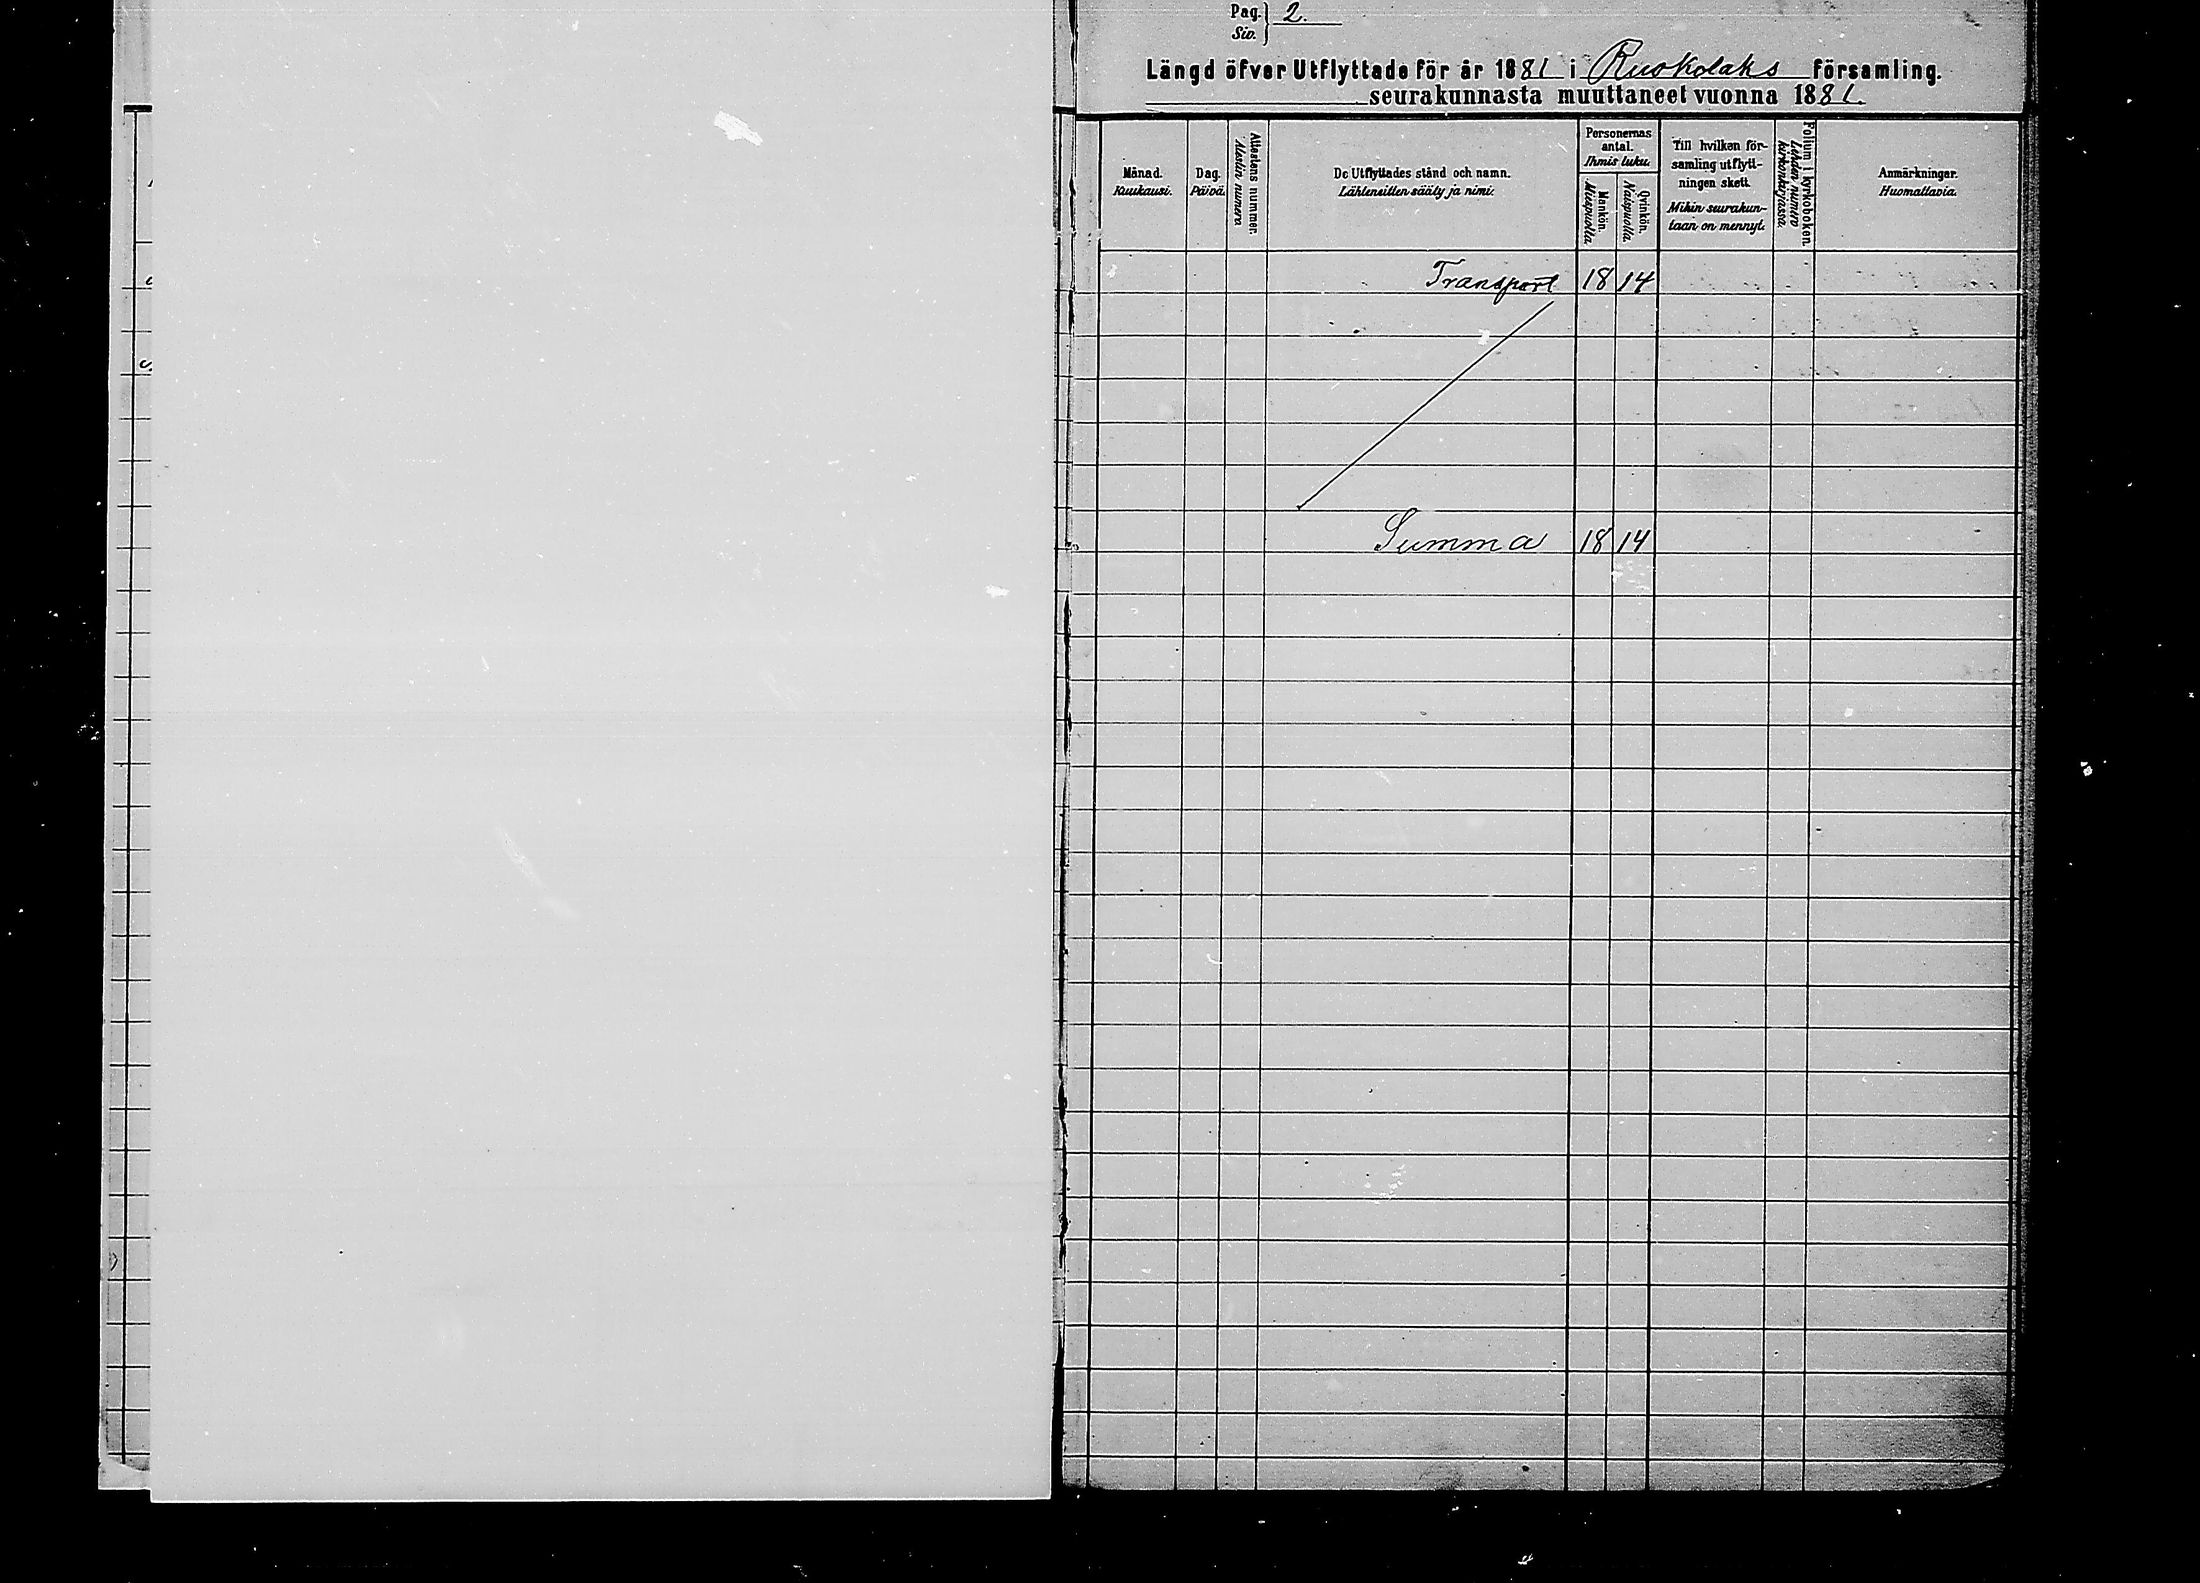 Pag. 2.
Siv.
Längd öfver Utflyttade för år 1881 i Ruokolaks församling.
seurakunnasta muuttaneet vuonna 1881.
Månad.
Kuukausi.
Dag.
Päivä.
Attestens nummer.
Atestin numero
De Utflyttades stånd och namn.
Lähteneitten sääty ja nimi.
Personernas
antal.
Ihmis luku.
Mankön.
Miespuolia
Qvinkön.
Naispuolia
Till hvilken för-
samling utflytt-
ningen skett.
Mihin seurakun-
taan on mennyt.
Folium i kyrkoboken.
Lehden numero
kirkonkirjassa.
Anmärkningar.
Huomattavia.
Transport 18 14
Summa 18 14